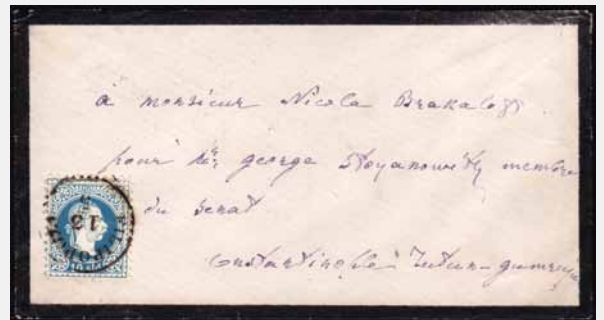 à monsieur Nicola Brakaloff
pour Mr george Stoyanowitz membre
du senat
Constantinople Tutun-gumruk
13